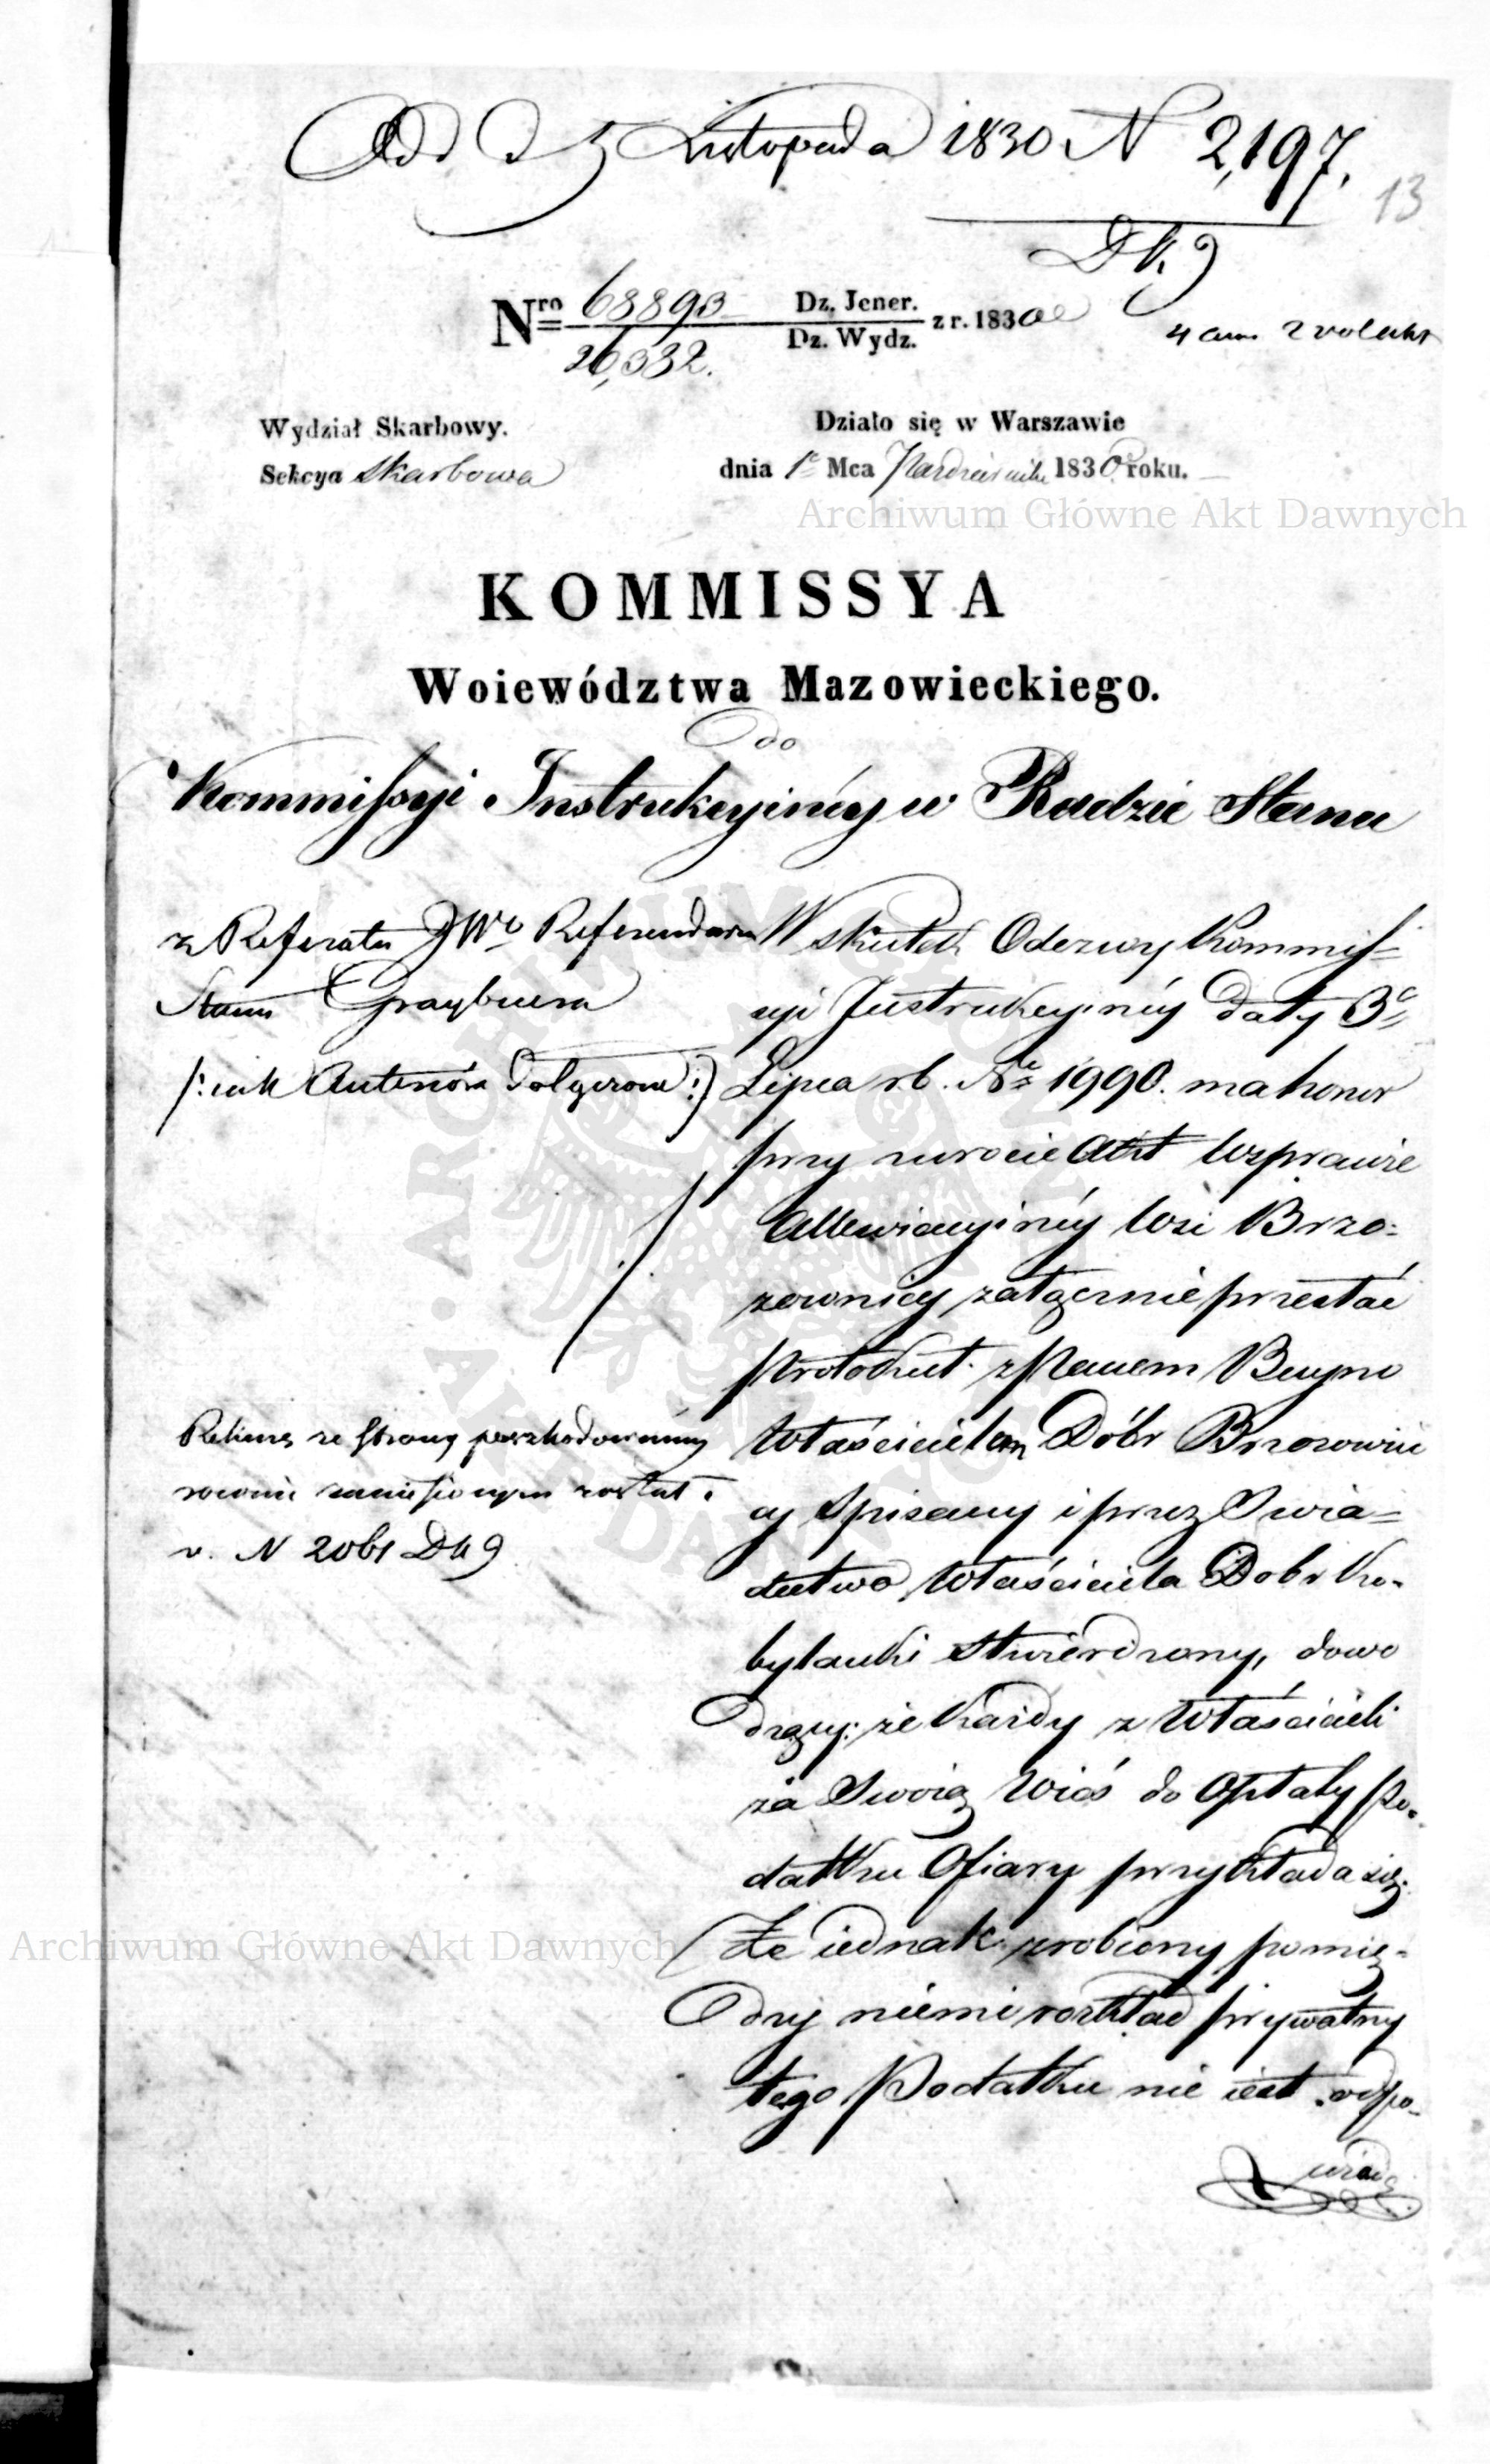 Odd d 5 Listopada 1830 N 2,197.
13
D K 9
Nro 68893 Dz. Jener. z r. 1830
26,332. Dz. Wydz.
4 cum 2 volum
Wydział Skarbowy. Działo się w Warszawie
Sekcya Skarbowa dnia 1 Mca Pazdziernika 1830 roku.
Archiwum Główne Akt Dawnych
KOMMISSYA
Woiewództwa Mazowieckiego.
do
Kommissyi Instrukcyiney w Radzie Stanu
z Referatu JWo Referendarza
Stanu Graybnera
/: iak Antenora :/
Rekurs ze strony poszkodowaney
równie zaniesionym został.
v. N 2061 D K 9
W skutek Odezwy Kommis=
syi Instrukcyiney daty 3
Lipca r.b. No 1990. ma honor
przy zwrocie Akt w sprawie
Allewiacyiney wsi Brzo=
zownicy załącznie przesłać
protokuł z Panem Buyno
Właścicielem Dóbr Brzozowni
cy spisany i przez Swia=
dectwo Właściciela Dobr Ko-
bylanki stwierdzony, dowo
dzący: że każdy z Właścicieli
za Swoią Wieś do Opłaty Po-
datku Ofiary przykłada się.
Że iednak zrobiony pomię-
dzy niemi rozkład prywatny
tego Podatku nie iest odpo-
wied
Archiwum Główne Akt Dawnych